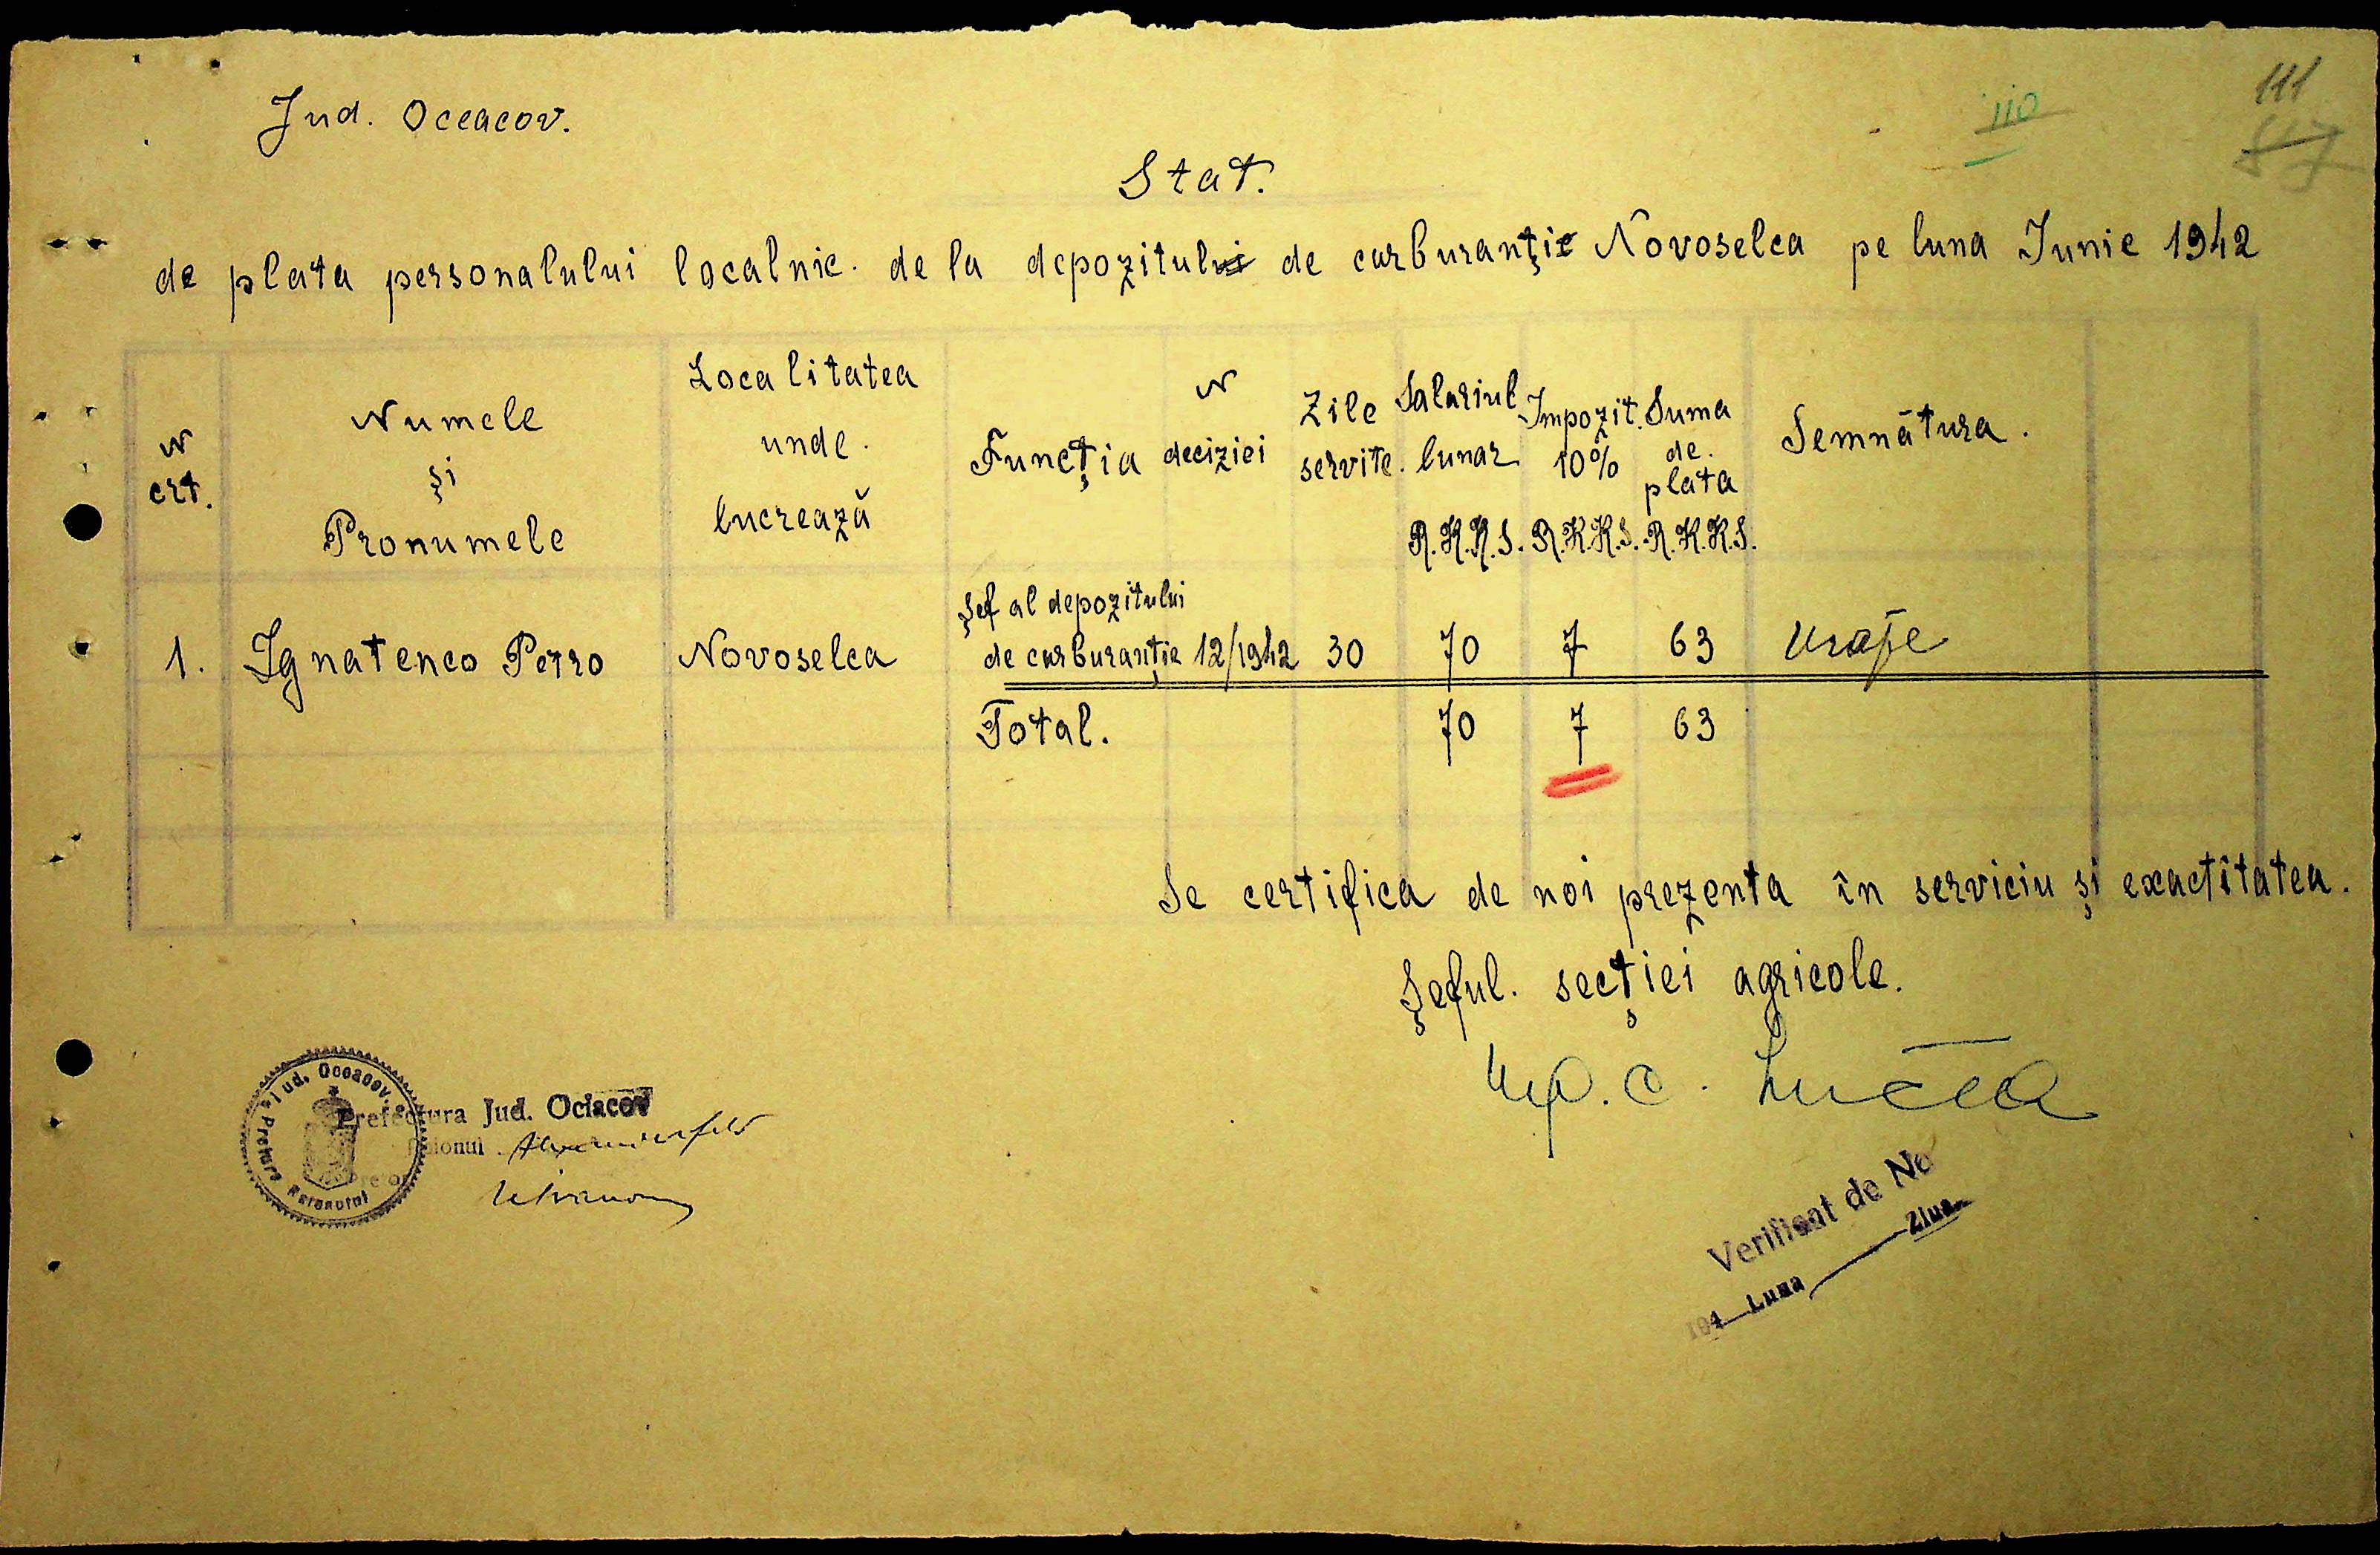 Jud. Oceacov.
110
111
87
Stat.
de plata personalului localnic. de la depozitului de carburanție Novoselca pe luna Iunie 1942
N crt.
Numele și Pronumele
Localitatea unde. lucrează
Funcția
N deciziei
Zile servite.
Salariul lunar R.K.K.S.
Impozit. 10% R.K.K.S.
Suma de. plata R.K.K.S.
Semnătura.
1. Ignatenco Petro Novoselca Șef al depozitului de carburanție 12/1942 30 70 7 63
Total. 70 7 63
Se certifica de noi prezenta în serviciu și exactitatea.
Șeful. secției agricole.
Pretura Raionului Jud. Oceacov.
Prefectura Jud. Ociacov
Raionul
Pretor
Verificat de No
194 Luna Ziua